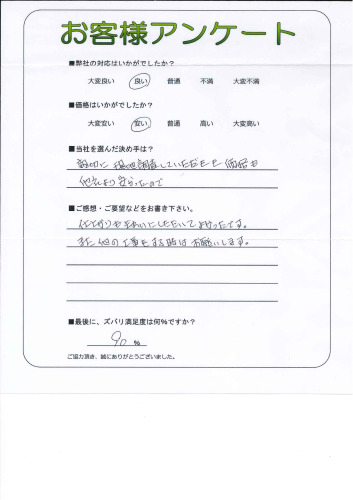 お客様アンケート
■弊社の対応はいかがでしたか?
大変良い 良い 普通 不満 大変不満
■価格はいかがでしたか?
大変安い 安い 普通 高い 大変高い
■当社を選んだ決め手は?
親切に 現地調査していただき 価格も
他社より安かったので
■ご感想・ご要望などをお書き下さい。
仕上がりもきれいにしただいてよかったです。
また他の工事をする時はお願いします。
■最後に、ズバリ満足度は何%ですか?
90 %
ご協力頂き、誠にありがとうございました。